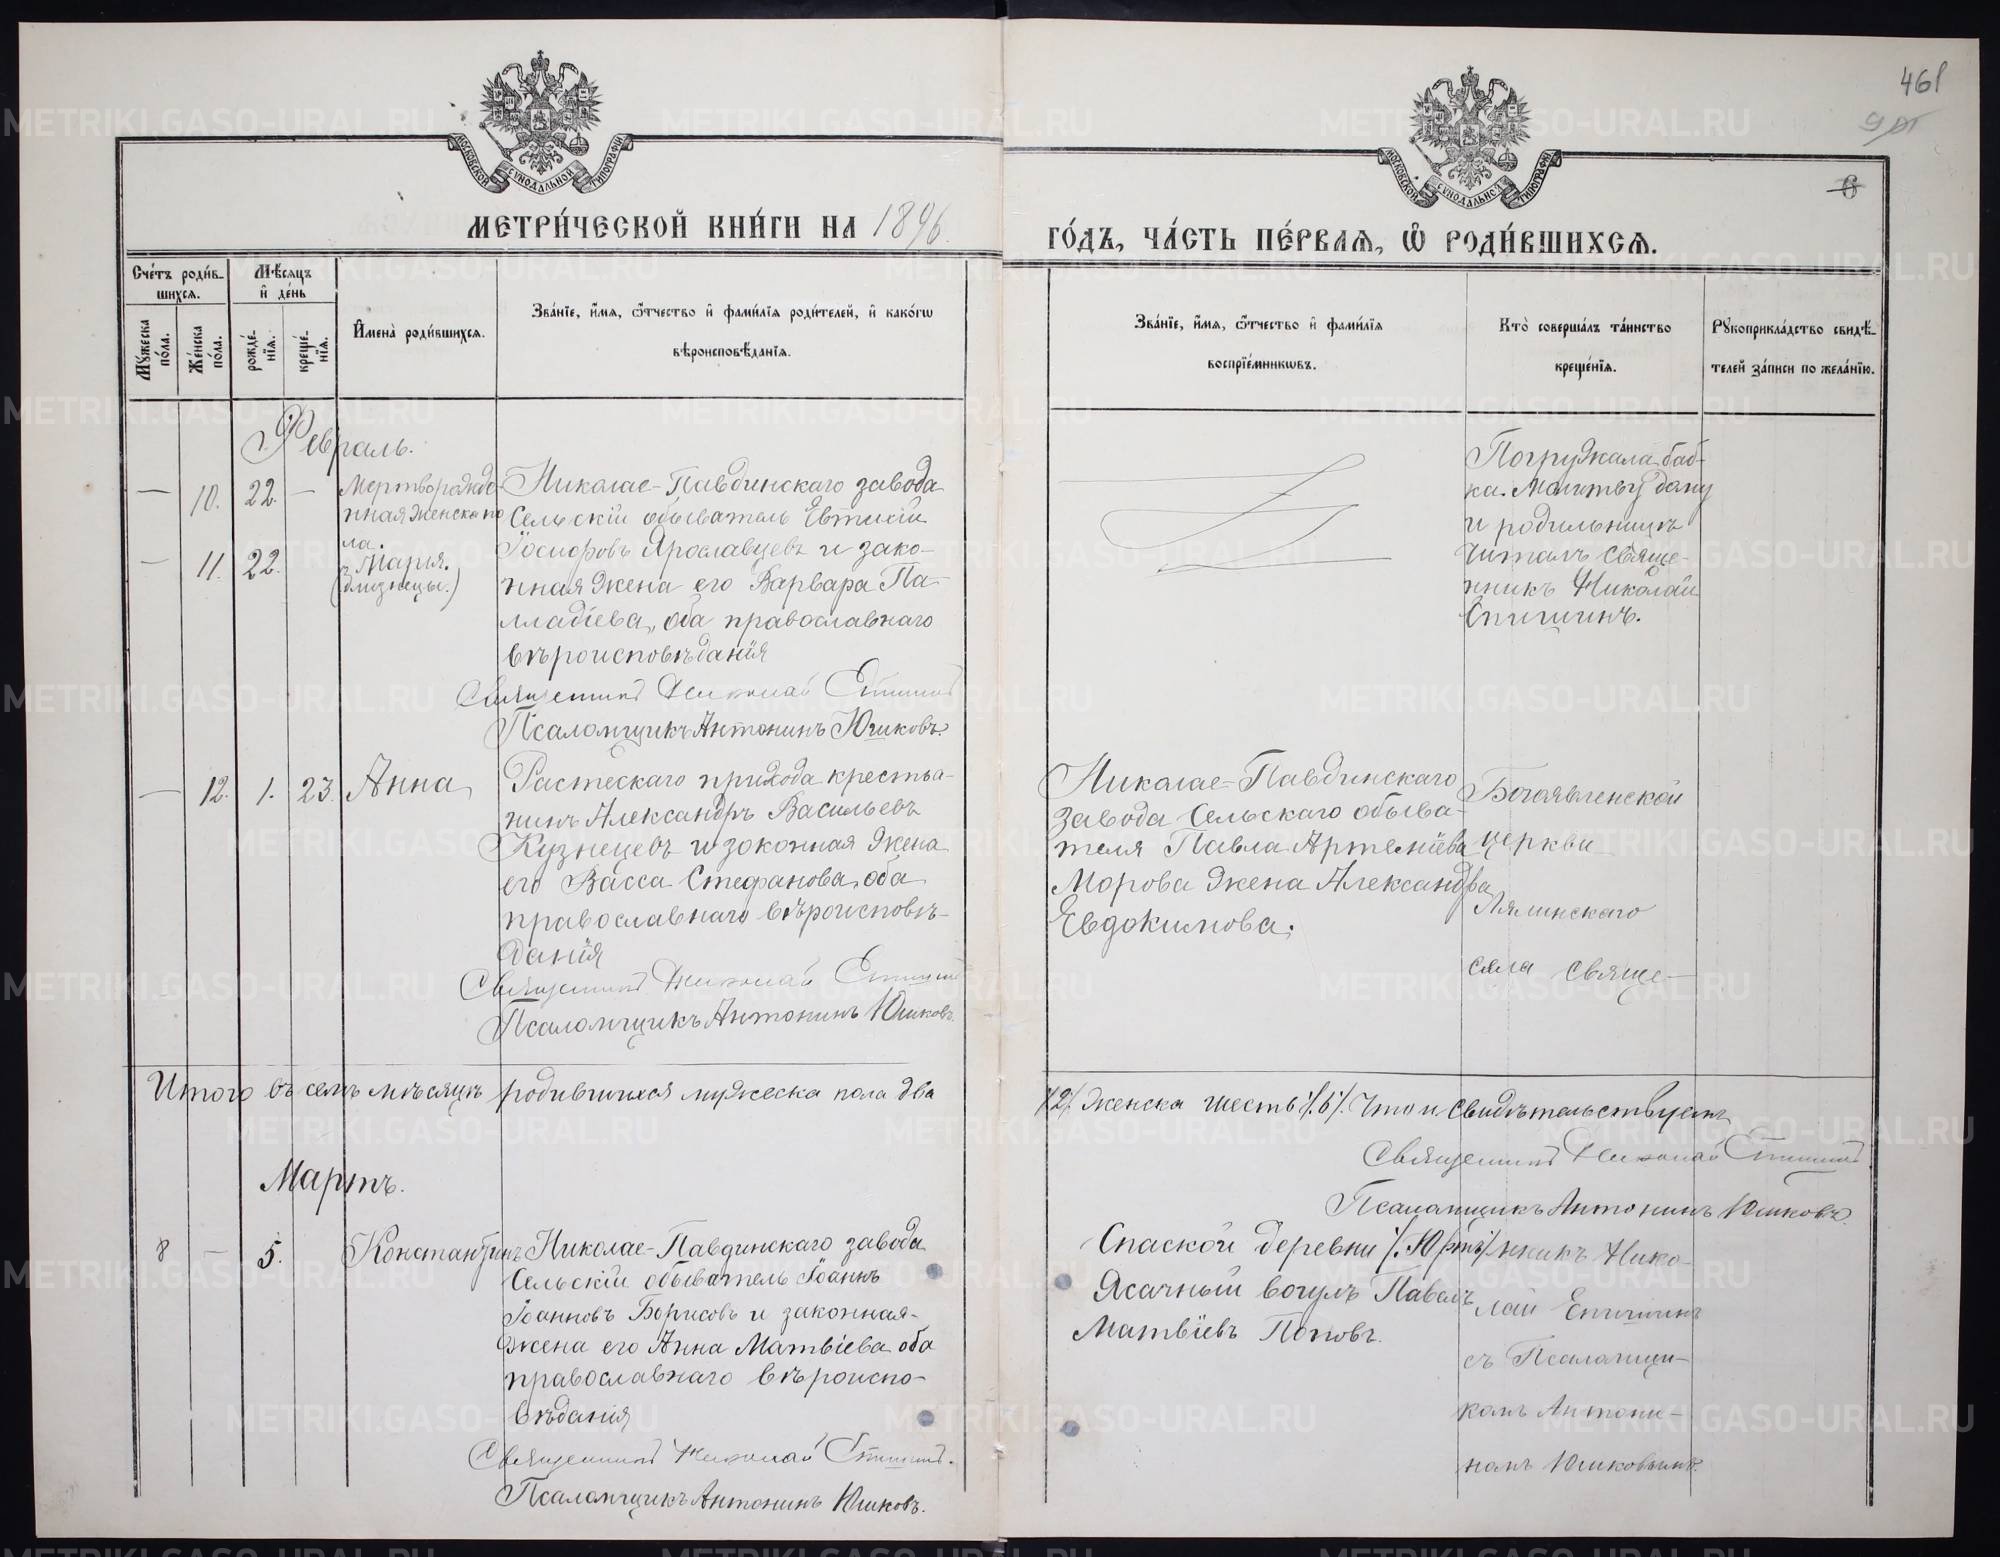 461
МОСКОВСКОЙ СУНОДАЛЬНОЙ ТИПОГРАФІИ
МОСКОВСКОЙ СУНОДАЛЬНОЙ ТИПОГРАФІИ
6
МЕТРИ́ЧЕСКОЙ КНИ́ГИ НА 1896
ГО́ДЪ, ЧА́СТЬ ПЕ́РВАѦ, Ѡ҆ РОДИ́ВШИХСѦ.
Сче́тъ роди́в-
шихсѧ.
Мѣ́сѧцъ
и҆ де́нь
Мꙋжеска
по́ла.
Же́нска
по́ла.
рожде́-
нїѧ.
креще́-
нїѧ.
И҆мена̀ роди́вшихсѧ.
Зва́нїе, и҆́мѧ, ѻ҆́тчество и҆ фами́лїѧ роди́телей, и҆ како́гѡ
вѣроисповѣ́данїѧ.
Зва́нїе, и҆́мѧ, ѻ҆́тчество и҆ фами́лїѧ
воспрїе́мникѡвъ.
Кто̀ соверша́лъ та́инство
креще́нїѧ.
Рꙋкоприкла́дство свидѣ́-
телей за́писи по жела́нїю.
Февраль.
— 10. 22. — Мертворожде-
нная женска по
ла.
— 11. 22. Марія.
(близнецы.)
Николае-Павдинскаго завода
Сельскій обыватель Евтихій
Іосифовъ Ярославцевъ и зако-
нная жена его Варвара Па-
лладіева, оба православнаго
вѣроисповѣданія
Священникъ Николай Епишинъ
Псаломщикъ Антонинъ Юшковъ.
Погружала баб-
ка. Молитву дому
и родильницѣ
читалъ Свяще-
нникъ Николай
Епишинъ.
— 12. 1. 23. Анна
Растескаго прихода крестья-
нинъ Александръ Васильевъ
Кузнецевъ и законная жена
его Васса Стефанова, оба
православнаго вѣроисповѣ-
данія
Священникъ Николай Епишинъ
Псаломщикъ Антонинъ Юшковъ.
Николае-Павдинскаго
завода Сельскаго обыва-
теля Павла Артеміева
Морова жена Александра
Евдокимова.
Богоявленской
церкви
Лялинскаго
села свяще-
Итого въ семъ мѣсяцѣ родившихся мужеска пола два
/2/. женска шесть /.6/. Что и свидѣтельствуемъ
Священникъ Николай Епишинъ
Псаломщикъ Антонинъ Юшковъ.
Мартъ.
8 — 5. Константинъ
Николае-Павдинскаго завода
Сельскій обыватель Іоаннъ
Іоанновъ Борисовъ и законная
жена его Анна Матвіева оба
православнаго вѣроиспо-
вѣданія
Священникъ Николай Епишинъ.
Псаломщикъ Антонинъ Юшковъ.
Спаской деревни /.Юртъ/
Ясачный вогулъ Павелъ
Матвіевъ Поповъ.
нникъ Нико-
лай Епишинъ
съ Псаломщи-
комъ Антони-
номъ Юшковымъ.
METRIKI.GASO-URAL.RU